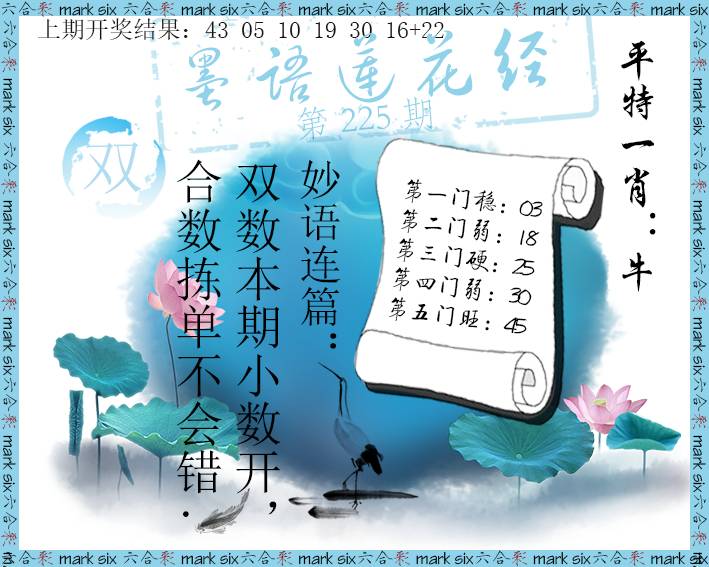 上期开奖结果: 43 05 10 19 30 16+22
墨语莲花经
第 225 期
双
平特一肖：牛
第一门稳：03
第二门弱：18
第三门硬：25
第四门弱：30
第五门旺：45
妙语连篇：
双数本期小数开，
合数拣单不会错．
六合彩 mark six 六合彩 mark six 六合彩 mark six 六合彩 mark six 六合彩 mark six 六合彩